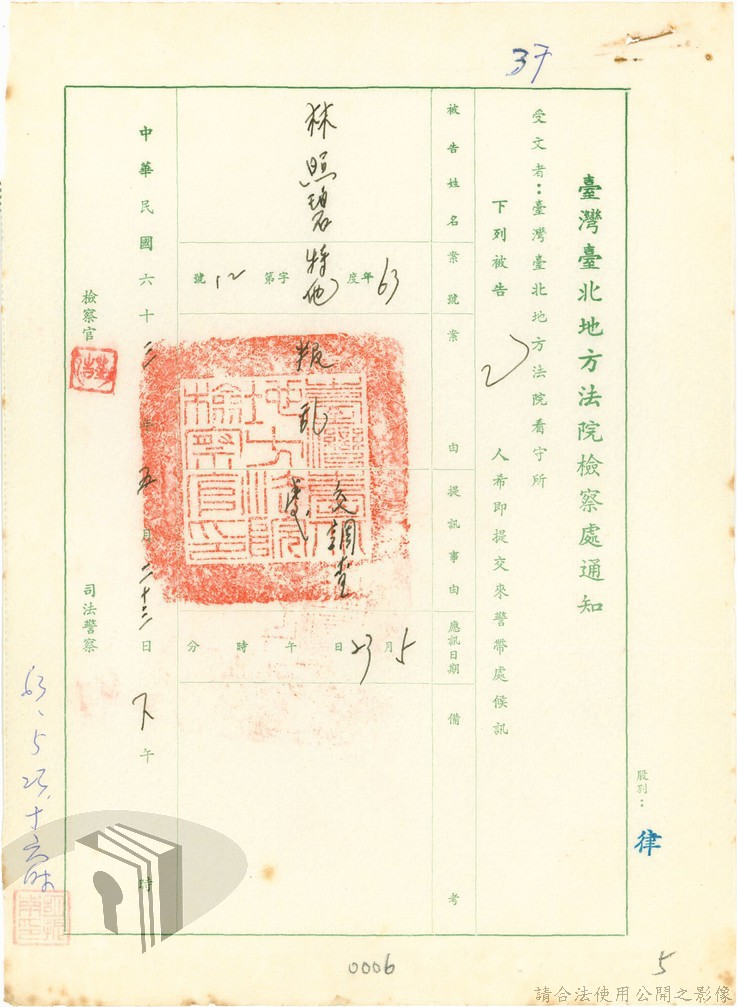 37
臺灣臺北地方法院檢察處通知
受文者：臺灣臺北地方法院看守所
下列被告 人希即提交來警帶處候訊
被告姓名 案號 案由 提訊事由 應訊日期 備考
林照碧
63年度特他字第12號
叛亂
交調查處
5月23日 午 時 分
中華民國六十三年五月二十三日 下午 時
檢察官
司法警察
臺灣臺北地方法院檢察官印
股別：律
63、5
0006
5
請合法使用公開之影像